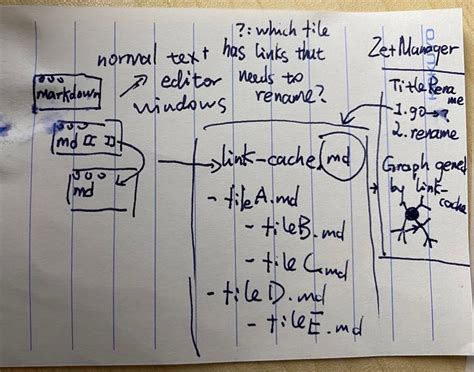 markdown
md [[ ]]
md
normal text
editor
windows
?: which file
has links that
needs to
rename?
link-cache.md
- fileA.md
- fileB.md
- fileC.md
- fileD.md
- fileE.md
ZetManager
KOKUYO
Title Rename
me
1. go → ?
2. rename
Graph gened
by link-
cache